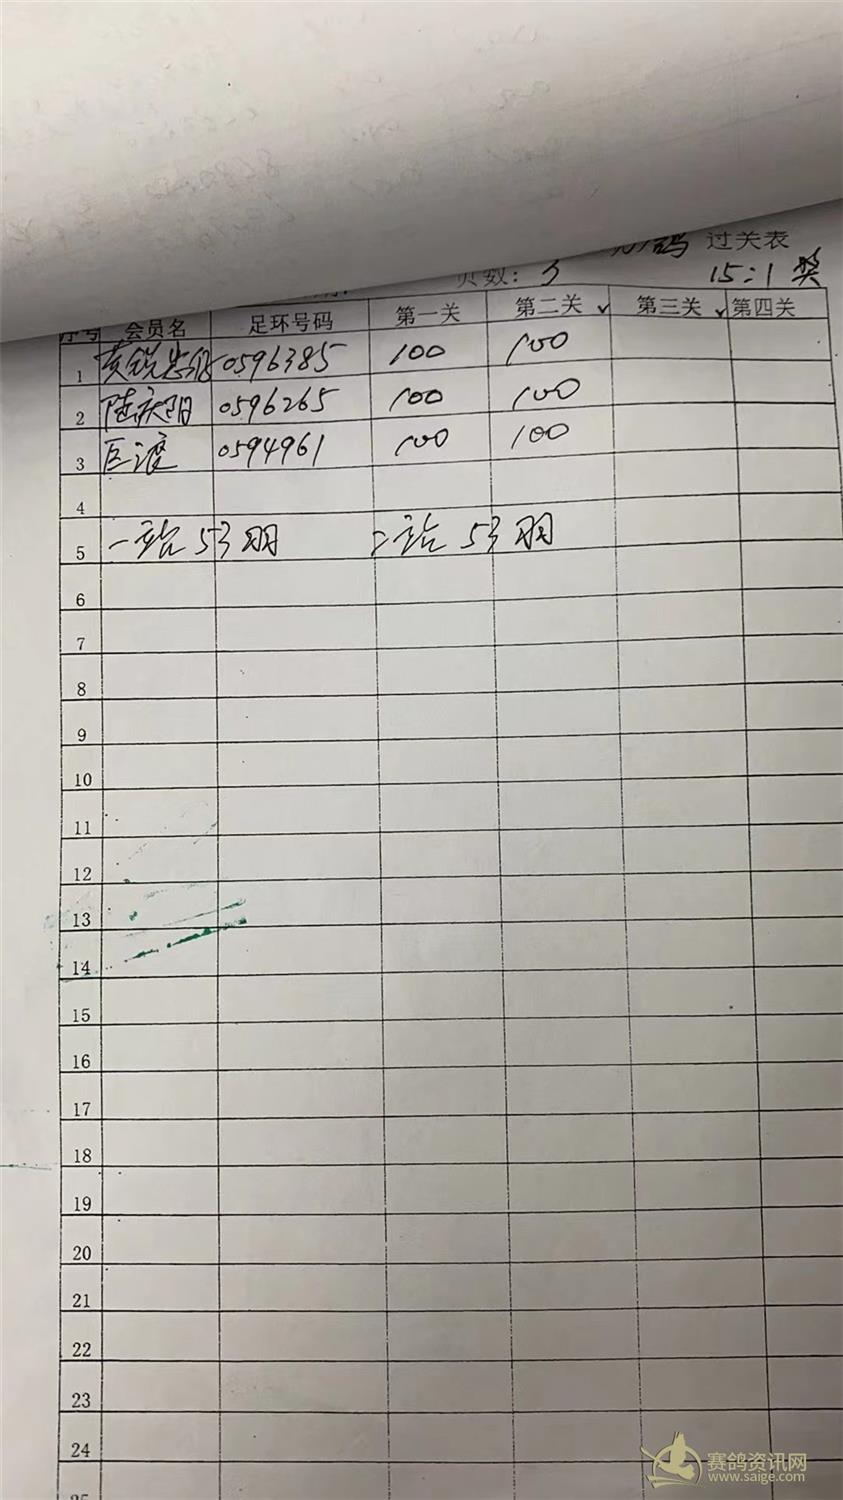 鸽 过关表
页数: 3 15:1 奖
序号 会员名 足环号码 第一关 第二关 ✓ 第三关 ✓ 第四关
1 0596385 100 100
2 陆庆阳 0596265 100 100
3 巨渡 0594961 100 100
4
5 一站 53羽 二站 53羽
6
7
8
9
10
11
12
13
14
15
16
17
18
19
20
21
22
23
24
25
赛鸽资讯网
www.saige.com